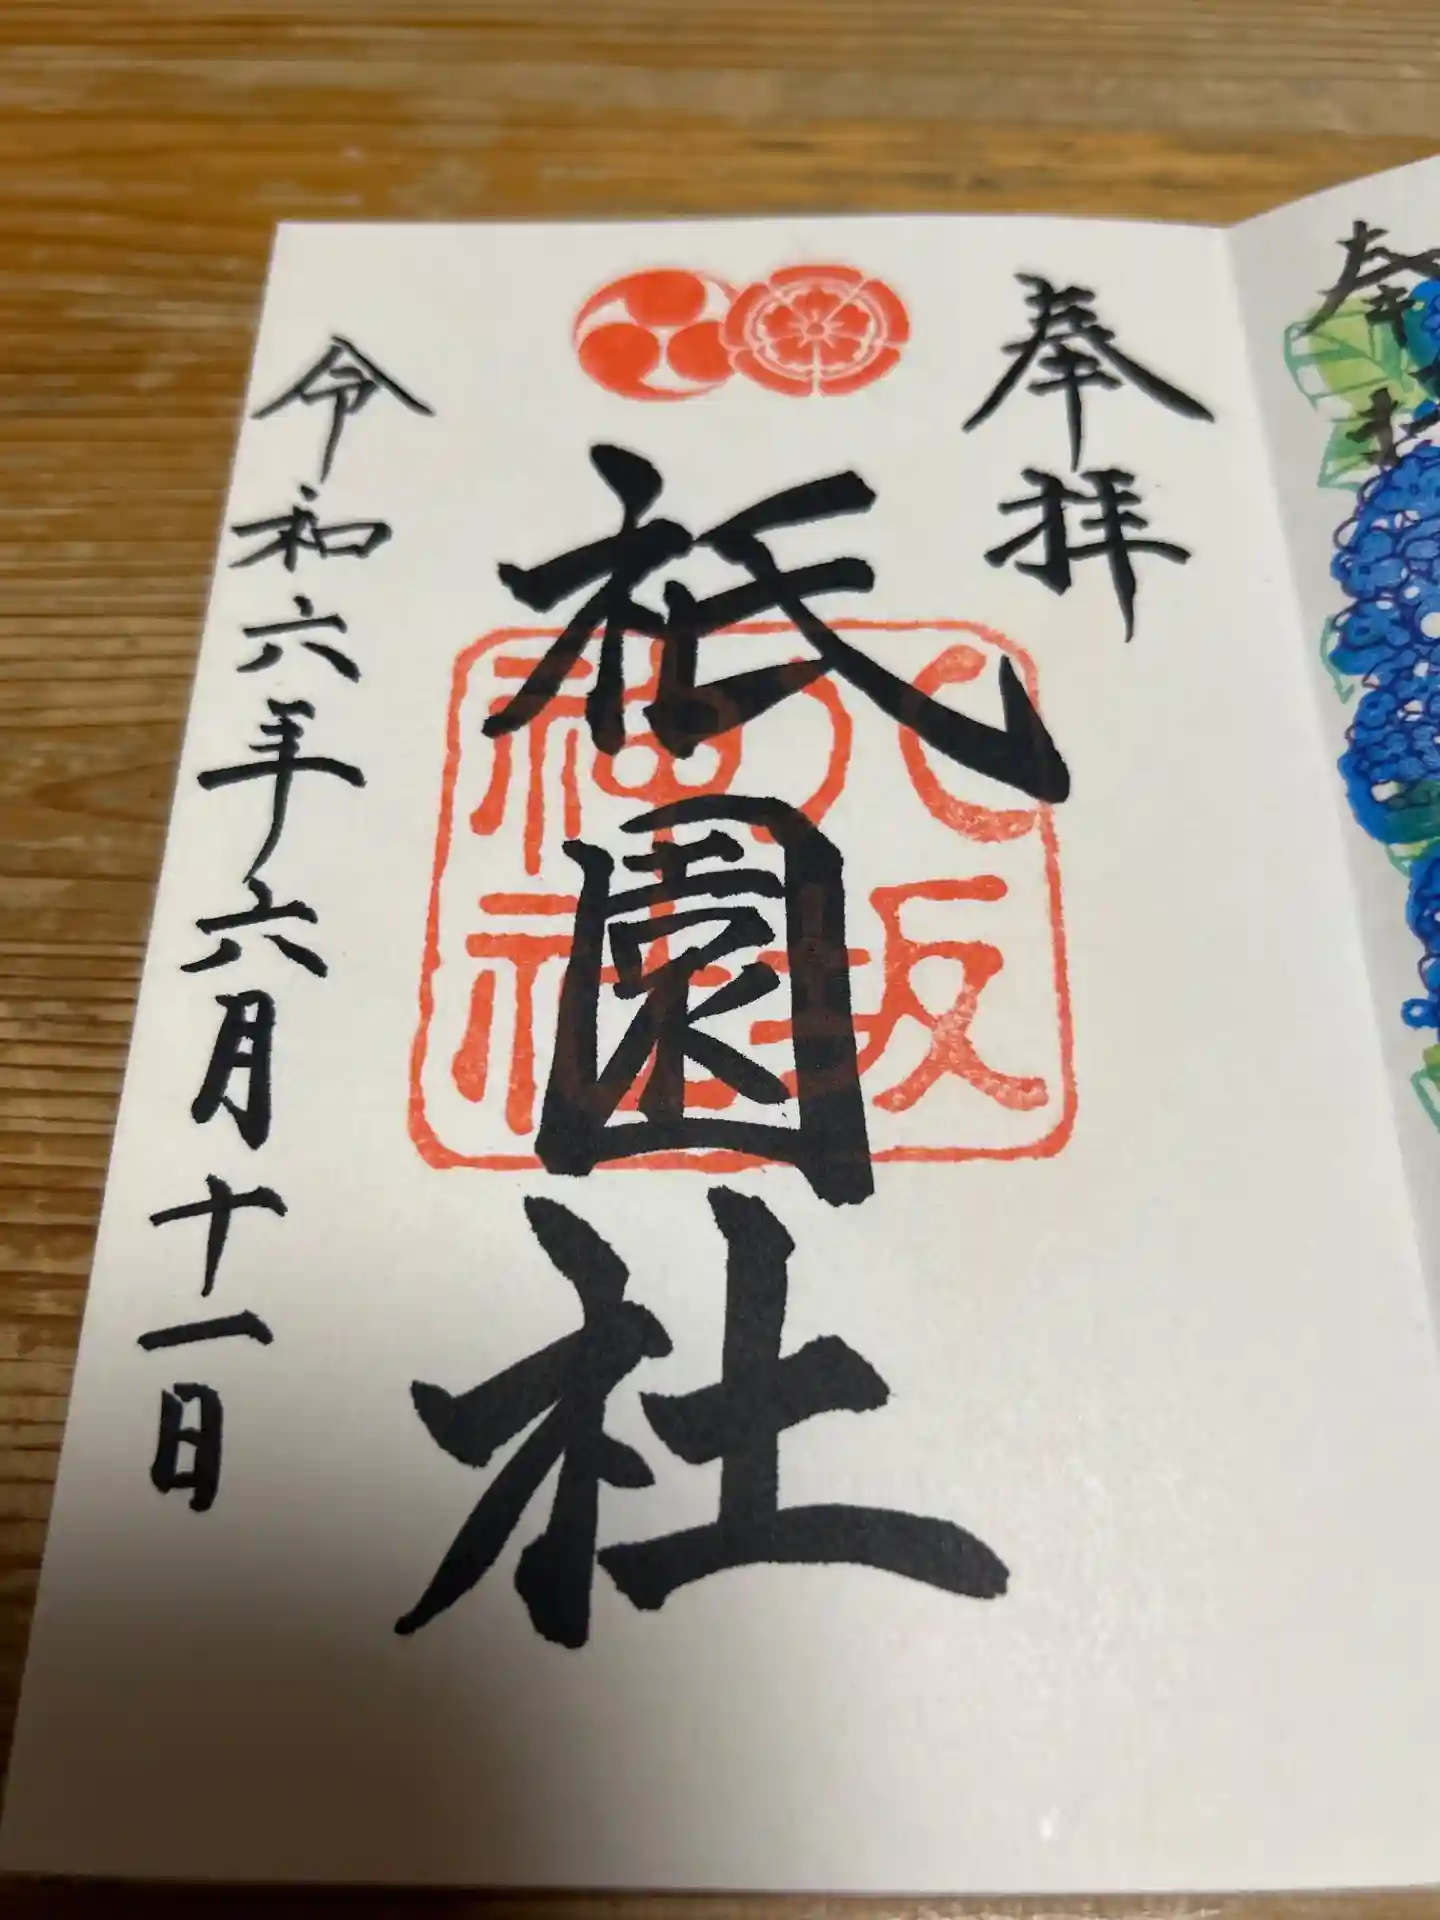 奉拝
八坂
神社
祇園社
令和六年六月十一日
奉